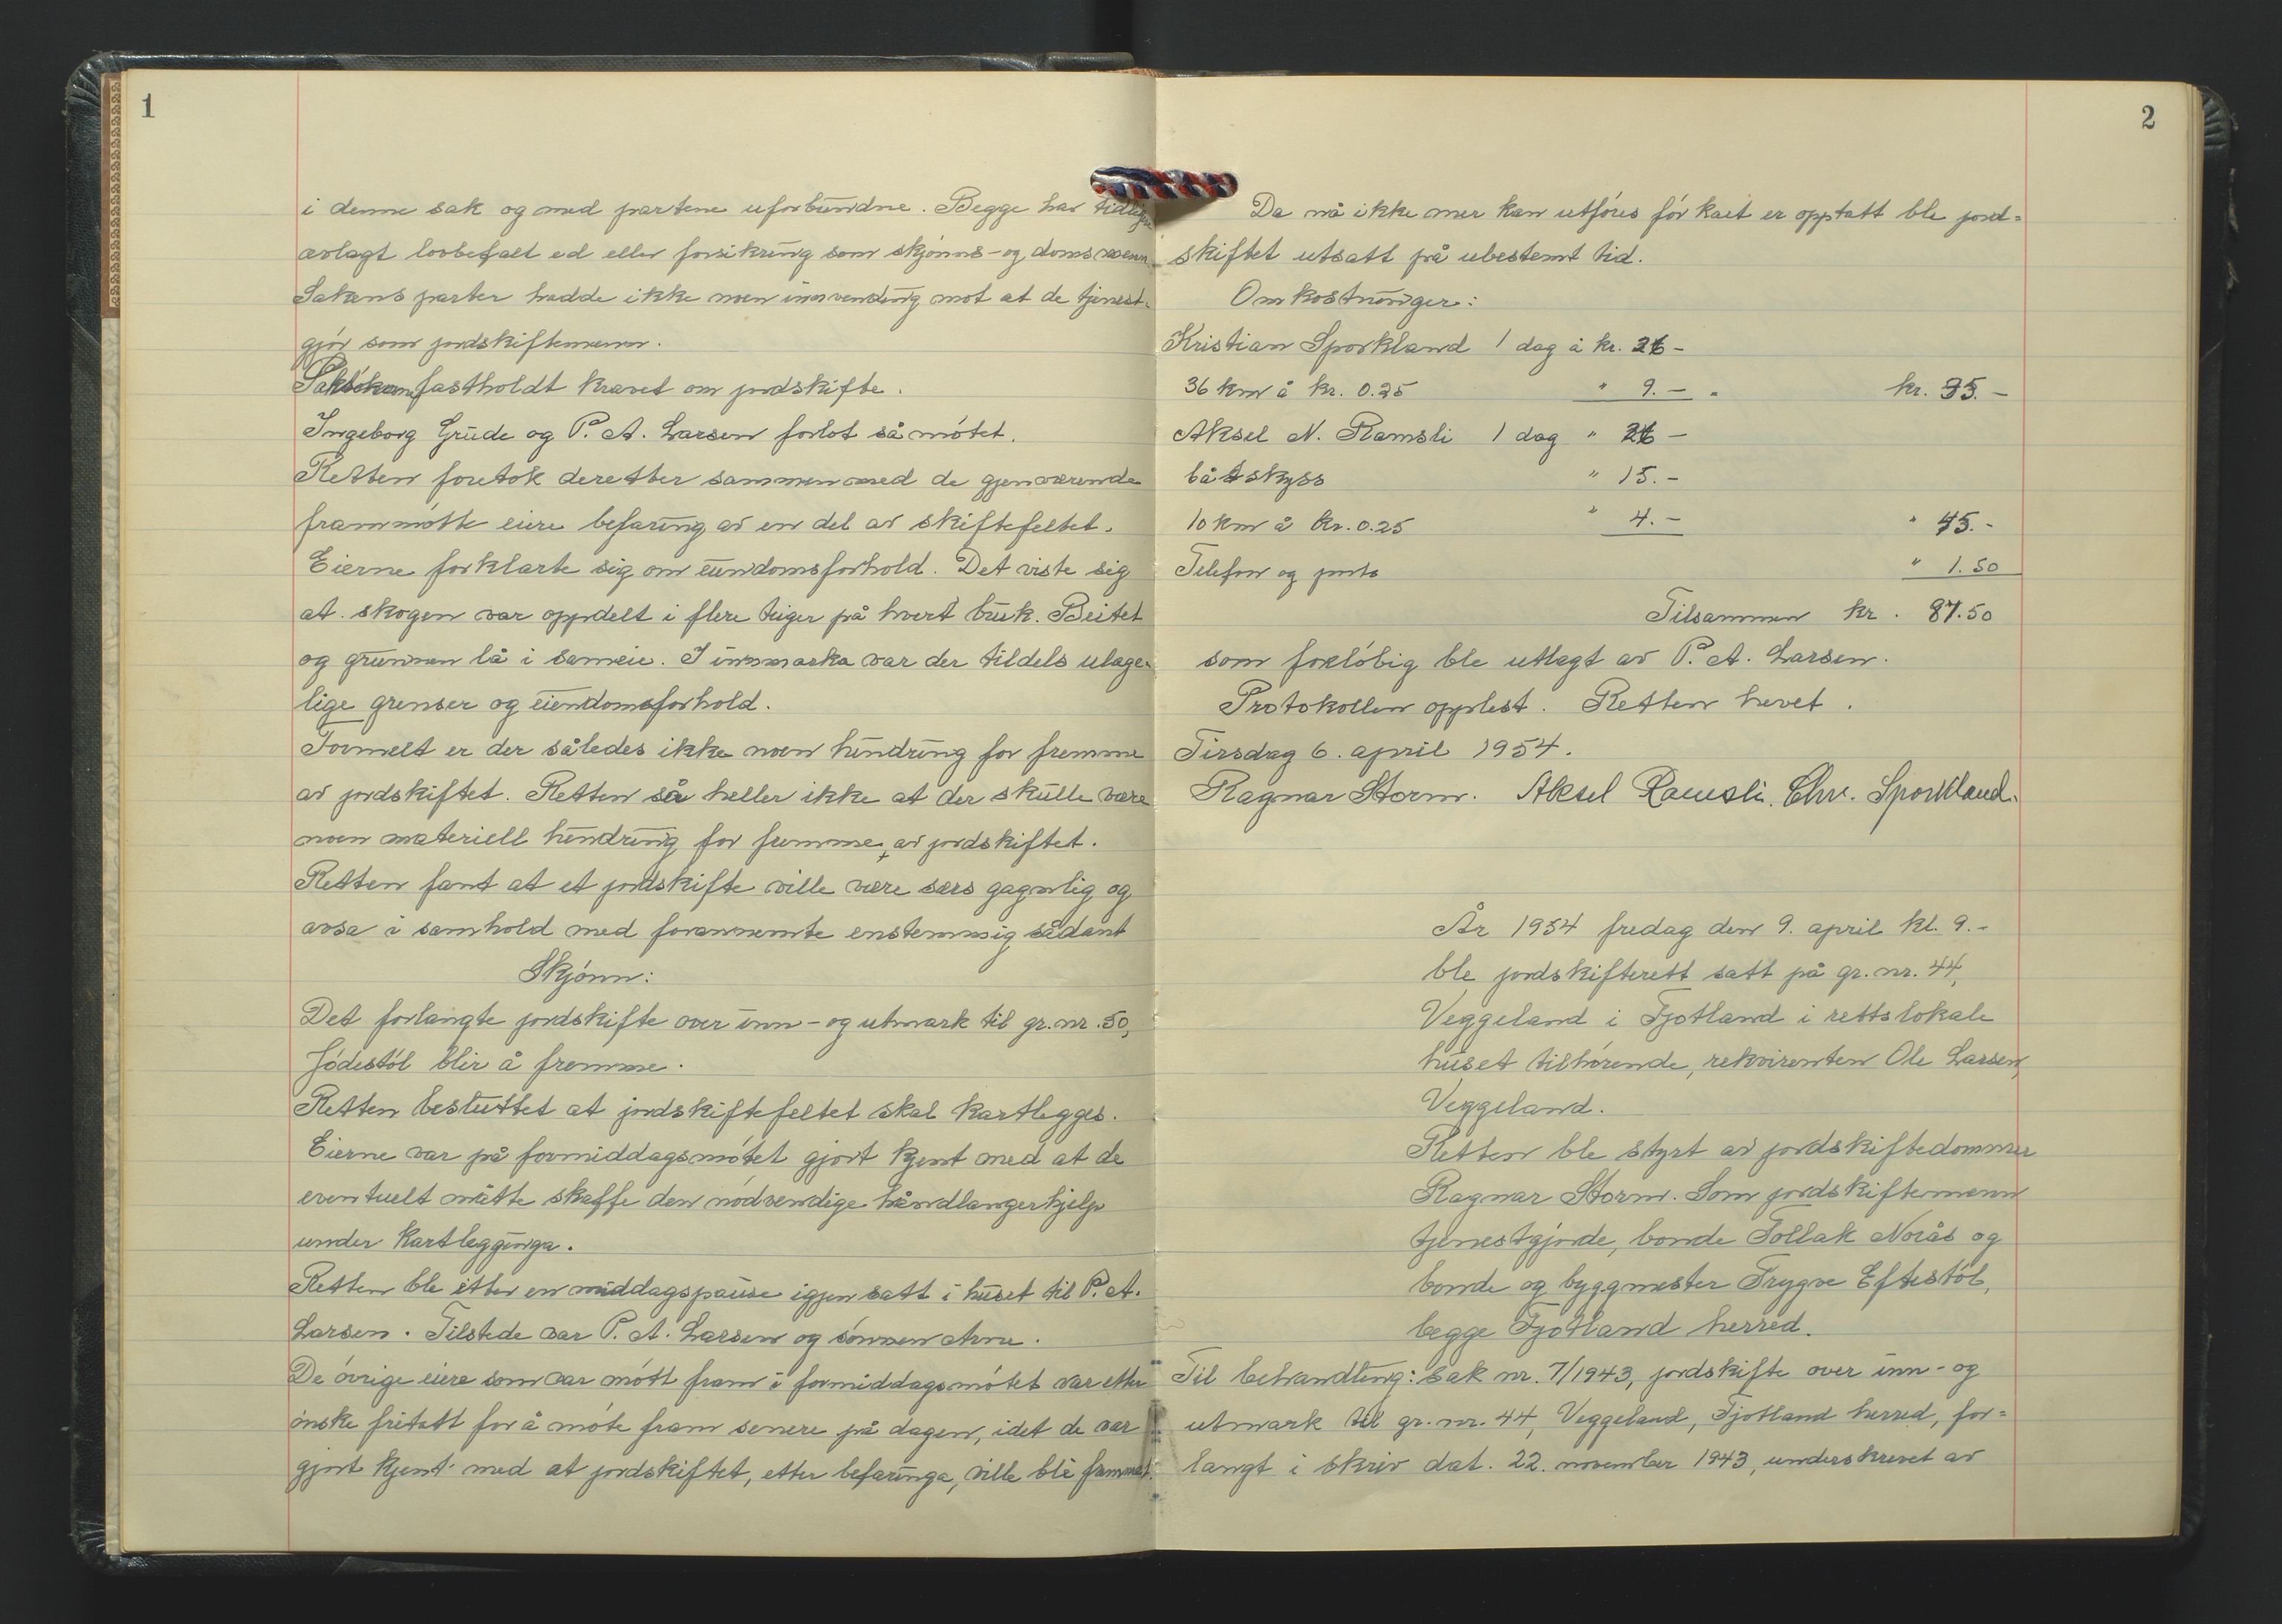 1
i denne sak og med partene uforbundne. Begge har tidligere
avlagt lovbefalt ed eller forsikring som skjønns- og domsmenn.
Sakens parter hadde ikke noen innvending mot at de tjenest-
gjør som jordskiftemenn.
Saksøkeren fastholdt kravet om jordskifte.
Ingeborg Grude og P. A. Larsen forlot så møtet.
Retten foretok deretter sammen med de gjenværende
frammøtte eiere befaring av en del av skiftefeltet.
Eierne forklarte sig om eiendomsforhold. Det viste sig
at skogen var oppdelt i flere teiger på hvert bruk. Beitet
og grunnen lå i sameie. I innmarka var der tildels ulage-
lige grenser og eiendomsforhold.
Formelt er der således ikke noen hindring for fremme
av jordskiftet. Retten så heller ikke at der skulle være
noen materiell hindring for fremme av jordskiftet.
Retten fant at et jordskifte ville være særs gagnlig og
avsa i samhold med forannemnte enstemmig sådant
Skjønn:
Det forlangte jordskifte over inn- og utmark til gr. nr. 50,
Jødestøl blir å fremme.
Retten besluttet at jordskiftefeltet skal kartlegges.
Eierne var på formiddagsmøtet gjort kjent med at de
eventuelt måtte skaffe den nødvendige håndlangerhjelp
under kartlegginga.
Retten ble etter en middagspause igjen satt i huset til P. A.
Larsen. Tilstede var P. A. Larsen og sønnen Arne.
De øvrige eiere som var møtt fram i formiddagsmøtet var etter
ønske fritatt for å møte fram senere på dagen, idet de var
gjort kjent med at jordskiftet, etter befaringa, ville bli fremmet.
2
Da nå ikke mer kan utføres før kart er opptatt ble jord=
skiftet utsatt på ubestemt tid.
Omkostninger:
Kristian Sporkland 1 dag à kr. 26 -
36 km à kr. 0.25 " 9.- " kr. 35.-
Aksel N. Ramsli 1 dag " 26 -
båtskyss " 15.-
10 km à kr. 0.25 " 4.- " 45.-
Telefon og porto " 1.50
Tilsammen kr. 81.50
som foreløbig ble utlagt av P. A. Larsen.
Protokollen opplest. Retten hevet.
Tirsdag 6. april 1954.
Ragnar Storm. Aksel Ramsli. Chr. Sporkland.
År 1954 fredag den 9. april kl. 9.-
ble jordskifterett satt på gr. nr. 44,
Veggeland i Fjotland i rettslokale
huset tilhørende, rekvirenten Ole Larsen,
Veggeland.
Retten ble styrt av jordskiftedommer
Ragnar Storm. Som jordskiftemenn
tjenestgjorde, bonde Tollak Norås og
bonde og byggmester Trygve Eftestøl,
begge Fjotland herred.
Til behandling: Sak nr. 7/1943, jordskifte over inn- og
utmark til gr. nr. 44, Veggeland, Fjotland herred, for=
langt i skriv dat. 22. november 1943, underskrevet av